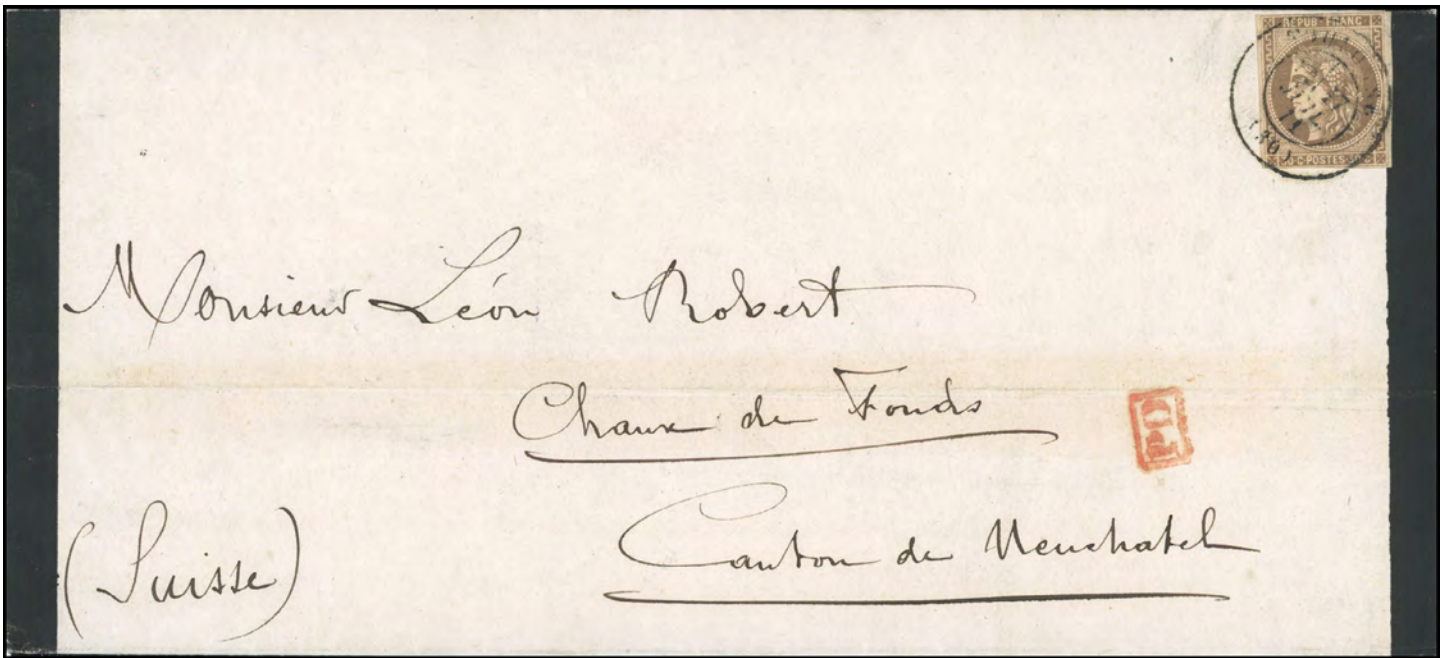 REPUB · FRANC
C · POSTES · 30
Monsieur Léon Robert
Chaux de Fonds
PD
Canton de Neuchatel
(Suisse)